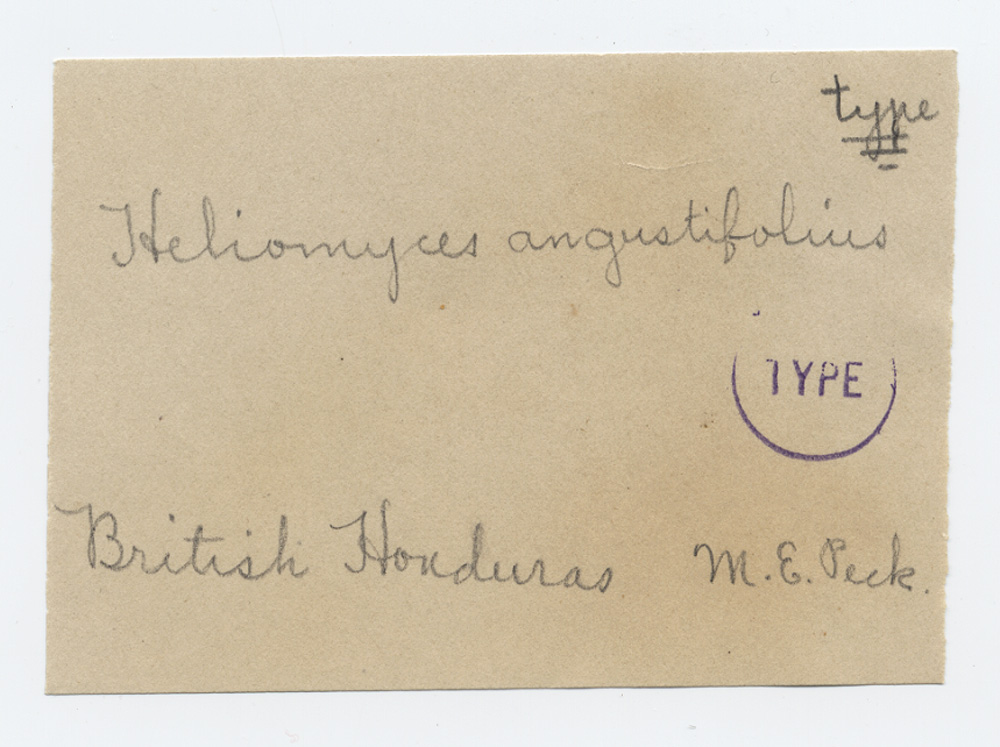 type
Heliomyces angustifolius
TYPE
British Honduras M. E. Peck.